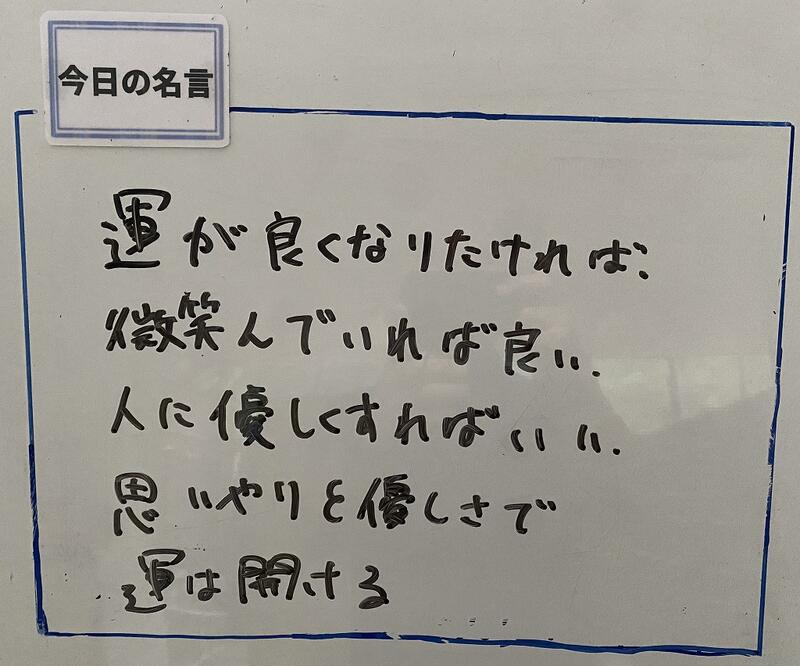 今日の名言
運が良くなりたければ、
微笑んでいれば良い。
人に優しくすればいい。
思いやりと優しさで
運は開ける